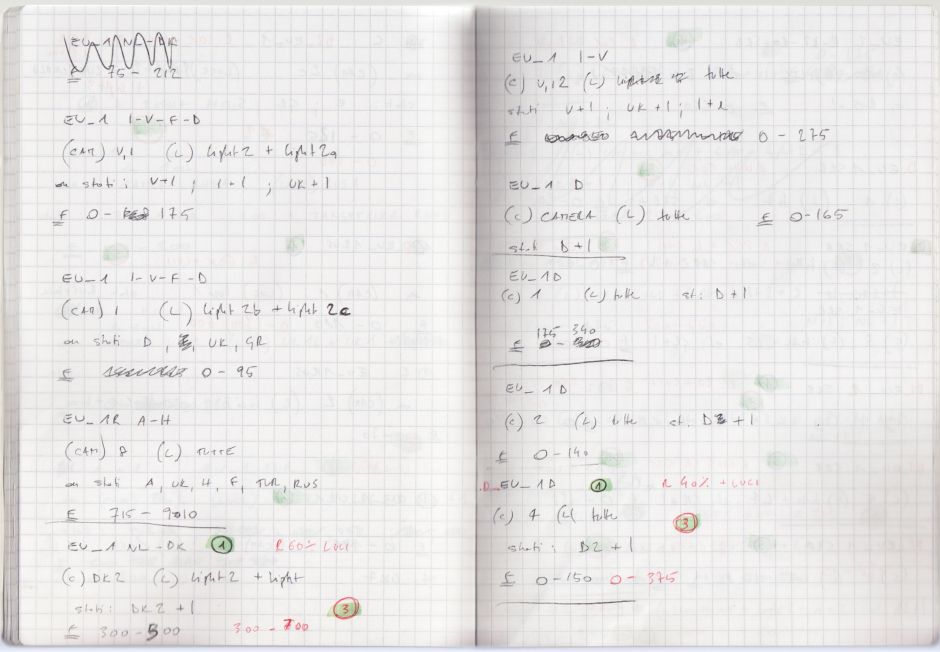 EU_1 NL-DK
F 75 - 212
EU_1 I-V-F-D
(CAM) V,1 (L) light 2 + light 2a
on stati: V+1 ; I+1 ; UK+1
F 0 - 175
EU_1 I-V-F-D
(CAM) 1 (L) light 2b + light 2c
on stati D, UK, GR
F 0-95
EU_1R A-H
(CAM) 8 (L) TUTTE
on stati A, UK, H, F, TUR, RUS
F 715 - 9010
EU_1 NL-DK 1 R 60% LUCI
(C) DK2 (L) light 2 + light
stati: DK2 +1
3
F 300-500 300-700
EU_1 I-V
(C) V,12 (L) tutte
stati V+1 ; UK+1 ; I+1
F 0 - 275
EU_1 D
(C) CAMERA (L) tutte F 0-165
stati D+1
EU_1D
(C) 1 (L) tutte st: D+1
175 340
F
EU_1D
(C) 2 (L) tutte st: D +1
F 0-140
EU_1D 1 R 40% + LUCI
(C) 4 (L) tutte
3
stati: D2 +1
F 0-150 0-375